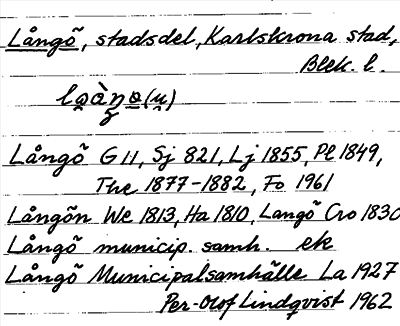 Långö, stadsdel, Karlskrona stad,
Blek. l.
Långö G11, Sj 821, Lj 1855, Pl 1849,
The 1877-1882, Fo 1961
Långön We 1813, Ha 1810, Langö Cro 1830
Långö municip. samh. ek
Långö Municipalsamhälle La 1927
Per-Olof Lindqvist 1962